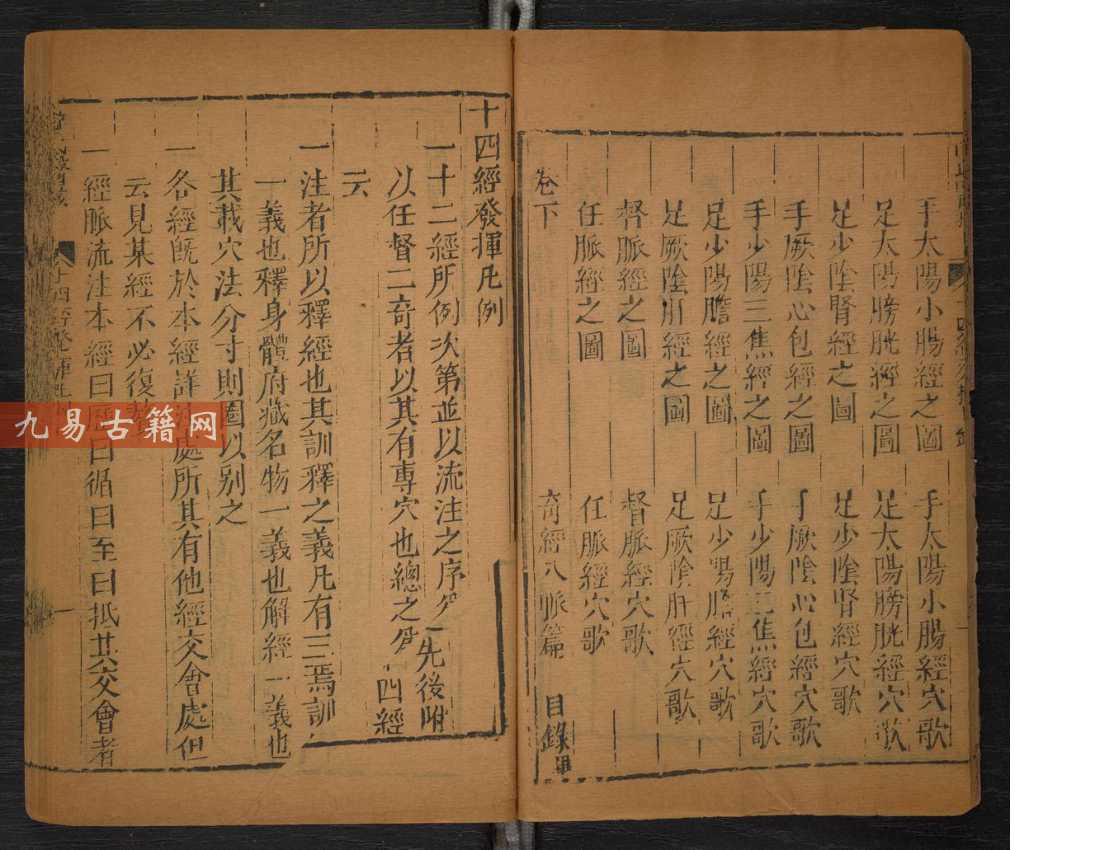 手太陽小腸經之圖 手太陽小腸經穴歌
足太陽膀胱經之圖 足太陽膀胱經穴歌
足少陰腎經之圖 足少陰腎經穴歌
手厥陰心包經之圖 手厥陰心包經穴歌
手少陽三焦經之圖 手少陽三焦經穴歌
足少陽膽經之圖 足少陽膽經穴歌
足厥陰肝經之圖 足厥陰肝經穴歌
督脈經之圖 督脈經穴歌
任脈經之圖 任脈經穴歌
卷下 奇經八脈篇 目錄畢
十四經發揮凡例
一十二經所例次第並以流注之序 先後附
以任督二奇者以其有專穴也總之 四經
云
一注者所以釋經也其訓釋之義凡有三焉訓
一義也釋身體府藏名物一義也解經一義也
其載穴法分寸則圈以别之
一各經旣於本經詳 處所其有他經交會處但
云見某經不必復
一經脈流注本經曰歷曰循曰至曰抵其交會者
九易古籍网